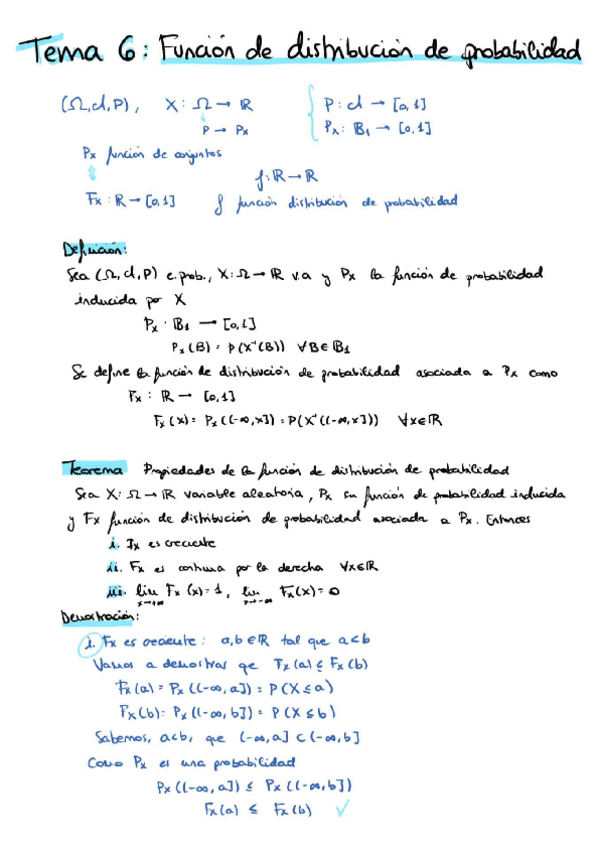 Tema 6: Función de distribución de probabilidad
(Ω, 𝒜, P), X: Ω → ℝ { P: 𝒜 → [0,1]
P → Px Px: 𝔹₁ → [0,1]
Px función de conjuntos
⇕ f: ℝ → ℝ
Fx: ℝ → [0,1] f función distribución de probabilidad
Definición:
Sea (Ω, 𝒜, P) e.prob., X: Ω → ℝ v.a y Px la función de probabilidad
inducida por X
Px : 𝔹₁ → [0,1]
Px(B) = P(X⁻¹(B)) ∀B∈𝔹₁
Se define la función de distribución de probabilidad asociada a Px como
Fx : ℝ → [0,1]
Fx(x) = Px((-∞,x]) = P(X⁻¹((-∞,x])) ∀x∈ℝ
Teorema Propiedades de la función de distribución de probabilidad
Sea X: Ω → ℝ variable aleatoria, Px su función de probabilidad inducida
y Fx función de distribución de probabilidad asociada a Px. Entonces
i. Fx es creciente
ii. Fx es continua por la derecha ∀x∈ℝ
iii. lim x→+∞ Fx(x)=1, lim x→-∞ Fx(x)=0
Demostración:
i. Fx es creciente: a,b ∈ ℝ tal que a<b
Vamos a demostrar que Fx(a) ≤ Fx(b)
Fx(a) = Px((-∞, a]) = P(X ≤ a)
Fx(b) = Px((-∞, b]) = P(X ≤ b)
Sabemos, a<b, que (-∞, a] ⊂ (-∞, b]
Como Px es una probabilidad
Px((-∞, a]) ≤ Px((-∞, b])
Fx(a) ≤ Fx(b) ✓